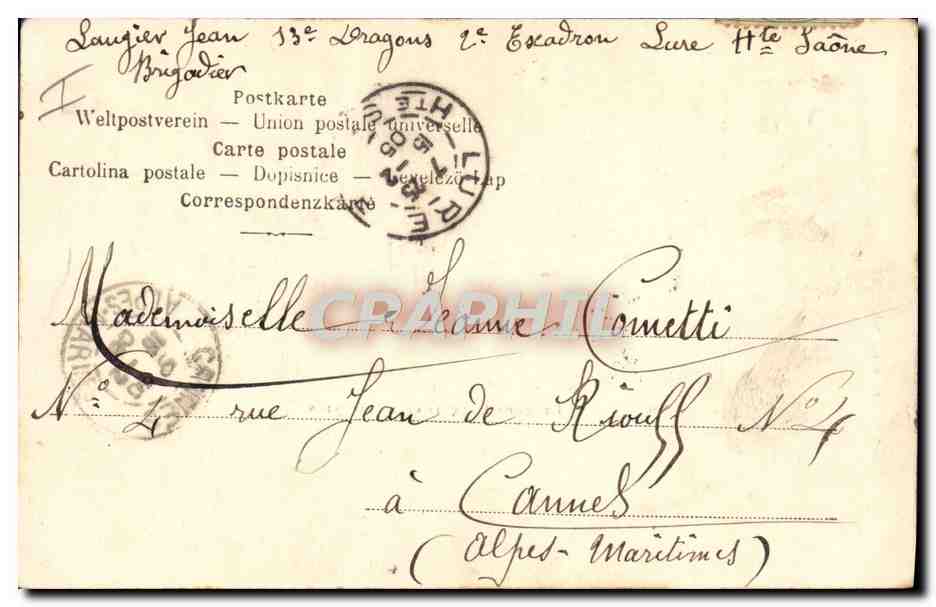 Laugier Jean 13e Dragons 2e Escadron Lure Hte Saône
Brigadier
Postkarte
Weltpostverein — Union postale universelle
Carte postale
Cartolina postale — Dopisnice — Levelező-Lap
Correspondenzkarte
LURE HTE
CPARHIL
Mademoiselle Jeanne Cometti
No 4 rue Jean de Riouff No 4
à Cannes
(Alpes-Maritimes)